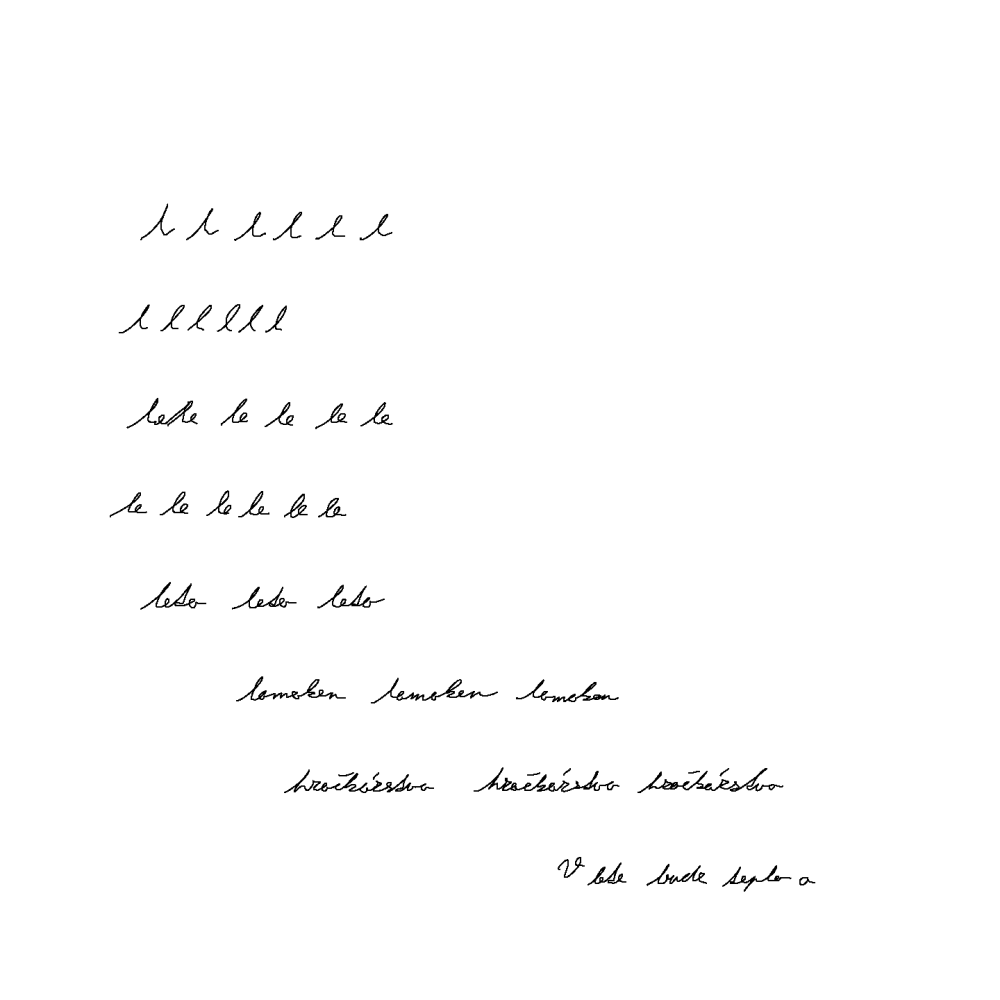 l l l l l l
l l l l l l
lele le le le le
le le le le le le
leto leto leto
lamoken lamoken lamoken
hračkárstvo hračkárstvo hračkárstvo
V lete bude teplo a